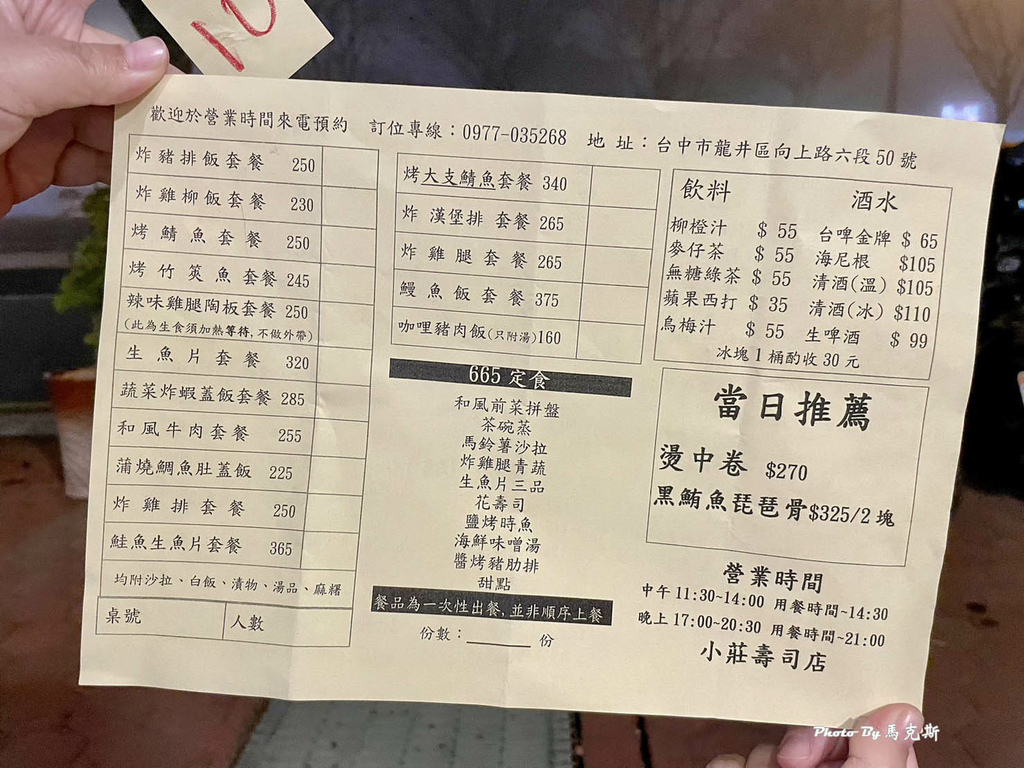 10
歡迎於營業時間來電預約 訂位專線：0977-035268 地 址：台中市龍井區向上路六段50號
炸豬排飯套餐 250
炸雞柳飯套餐 230
烤鯖魚套餐 250
烤竹筴魚套餐 245
辣味雞腿陶板套餐 250
(此為生食須加熱等待,不做外帶)
生魚片套餐 320
蔬菜炸蝦蓋飯套餐 285
和風牛肉套餐 255
蒲燒鯛魚肚蓋飯 225
炸雞排套餐 250
鮭魚生魚片套餐 365
均附沙拉、白飯、漬物、湯品、麻糬
桌號 人數
烤大支鯖魚套餐 340
炸漢堡排套餐 265
炸雞腿套餐 265
鰻魚飯套餐 375
咖哩豬肉飯(只附湯)160
665 定食
和風前菜拼盤
茶碗蒸
馬鈴薯沙拉
炸雞腿青蔬
生魚片三品
花壽司
鹽烤時魚
海鮮味噌湯
醬烤豬肋排
甜點
餐品為一次性出餐,並非順序上餐
份數： 份
飲料 酒水
柳橙汁 $ 55 台啤金牌 $ 65
麥仔茶 $ 55 海尼根 $105
無糖綠茶 $ 55 清酒(溫) $105
蘋果西打 $ 35 清酒(冰) $110
烏梅汁 $ 55 生啤酒 $ 99
冰塊1桶酌收30元
當日推薦
燙中卷 $270
黑鮪魚琵琶骨$325/2塊
營業時間
中午 11:30~14:00 用餐時間~14:30
晚上 17:00~20:30 用餐時間~21:00
小莊壽司店
Photo By 馬克斯